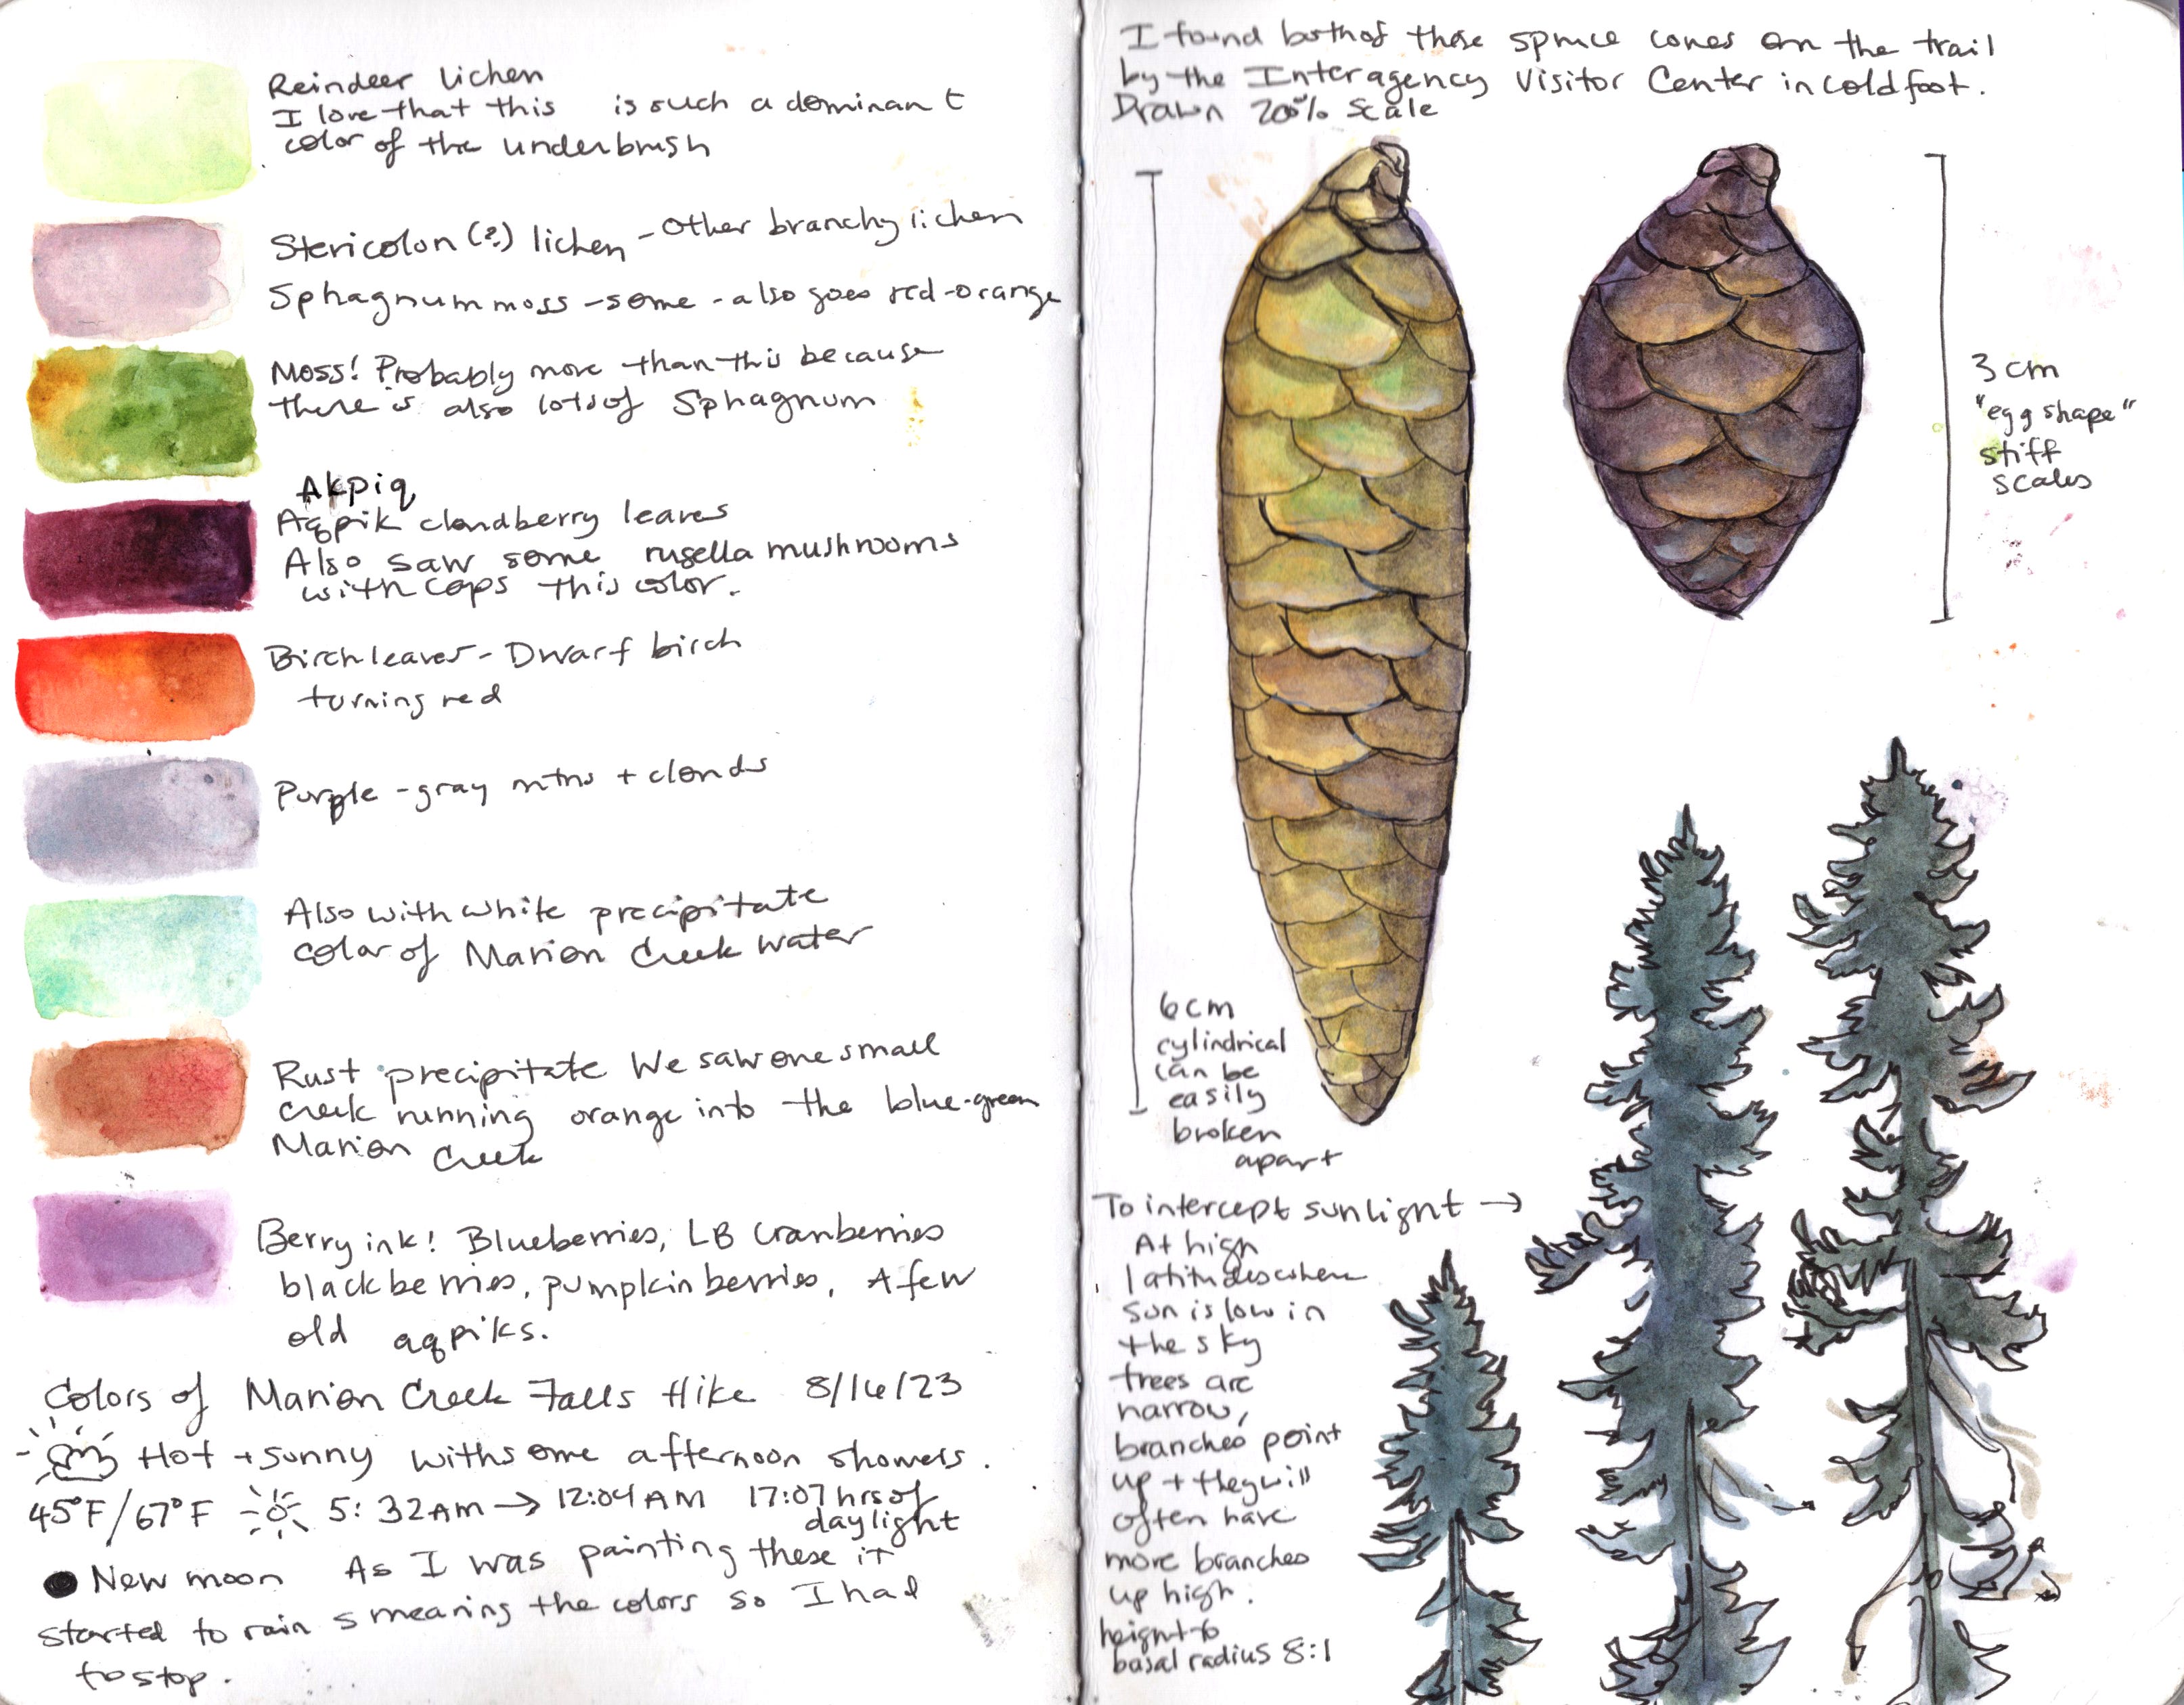 Reindeer Lichen
I love that this is such a dominant
color of the underbrush
Stericolon (?) lichen - Other branchy lichen
Sphagnum moss - some - also goes red-orange
Moss! Probably more than this because
there is also lots of Sphagnum
Akpiq
Aqpik cloudberry leaves
Also saw some rusella mushrooms
with caps this color.
Birch leaves - Dwarf birch
turning red
Purple - gray mtns + clouds
Also with white precipitate
color of Marion Creek water
Rust precipitate We saw one small
creek running orange into the blue-green
Marion Creek
Berry ink! Blueberries, LB cranberries
blackberries, pumpkin berries, A few
old aqpiks.
Colors of Marion Creek Falls Hike 8/16/23
Hot + sunny with some afternoon showers.
45°F/67°F 5:32AM → 12:04AM 17:07 hrs of
daylight
New moon As I was painting these it
started to rain smearing the colors so I had
to stop.
I found both of these spruce cones on the trail
by the Interagency Visitor Center in Coldfoot.
Drawn 200% scale
3 cm
"egg shape"
stiff
scales
6 cm
cylindrical
can be
easily
broken
apart
To intercept sunlight →
At high
latitudes where
sun is low in
the sky
trees are
narrow,
branches point
up + they will
often have
more branches
up high.
height to
basal radius 8:1